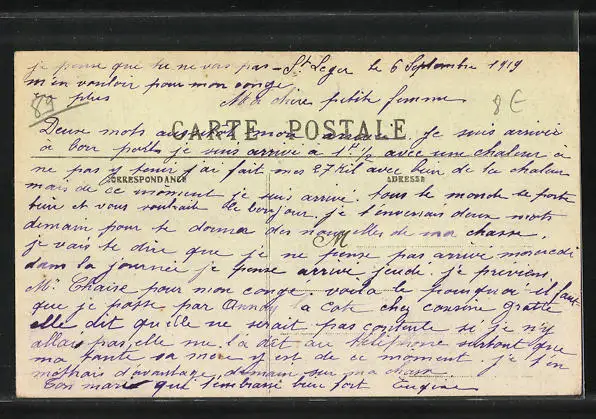 je pense que tu ne vas pas - St Leger le 6 Septembre 1919
m'en vouloir pour mon congé
en plus
89
8 €
Ma chère petite femme
CARTE POSTALE
Deux mots mon je suis arrivée
à bon port je suis arrivé à 1H 1/2 avec une chaleur à
ne pas y tenir j'ai fait mes 27 Kil avec bien de la chaleur
CORRESPONDANCE
ADRESSE
mais de ce moment je suis arrivé. tous le monde se porte
bien et vous souhaite le bonjour. je t'enverrais deux mots
demain pour te donner des nouvelles de ma chasse.
M
je vais te dire que je ne pense pas arrivé mercredi
dans la journée je pense arrivé jeudi. je previens
Mr Chaise pour mon congé. voila le pourquoi il faut
que je passe par Annay la Cote chez cousine
elle dit qu'elle ne serait pas contente si je n'y
allais pas, elle me la dit au téléphone surtout que
ma tante sa mère y est de ce moment je t'en
m davantage, demain sur ma chasse.
Ton mari qui t'embrasse bien fort Eugène